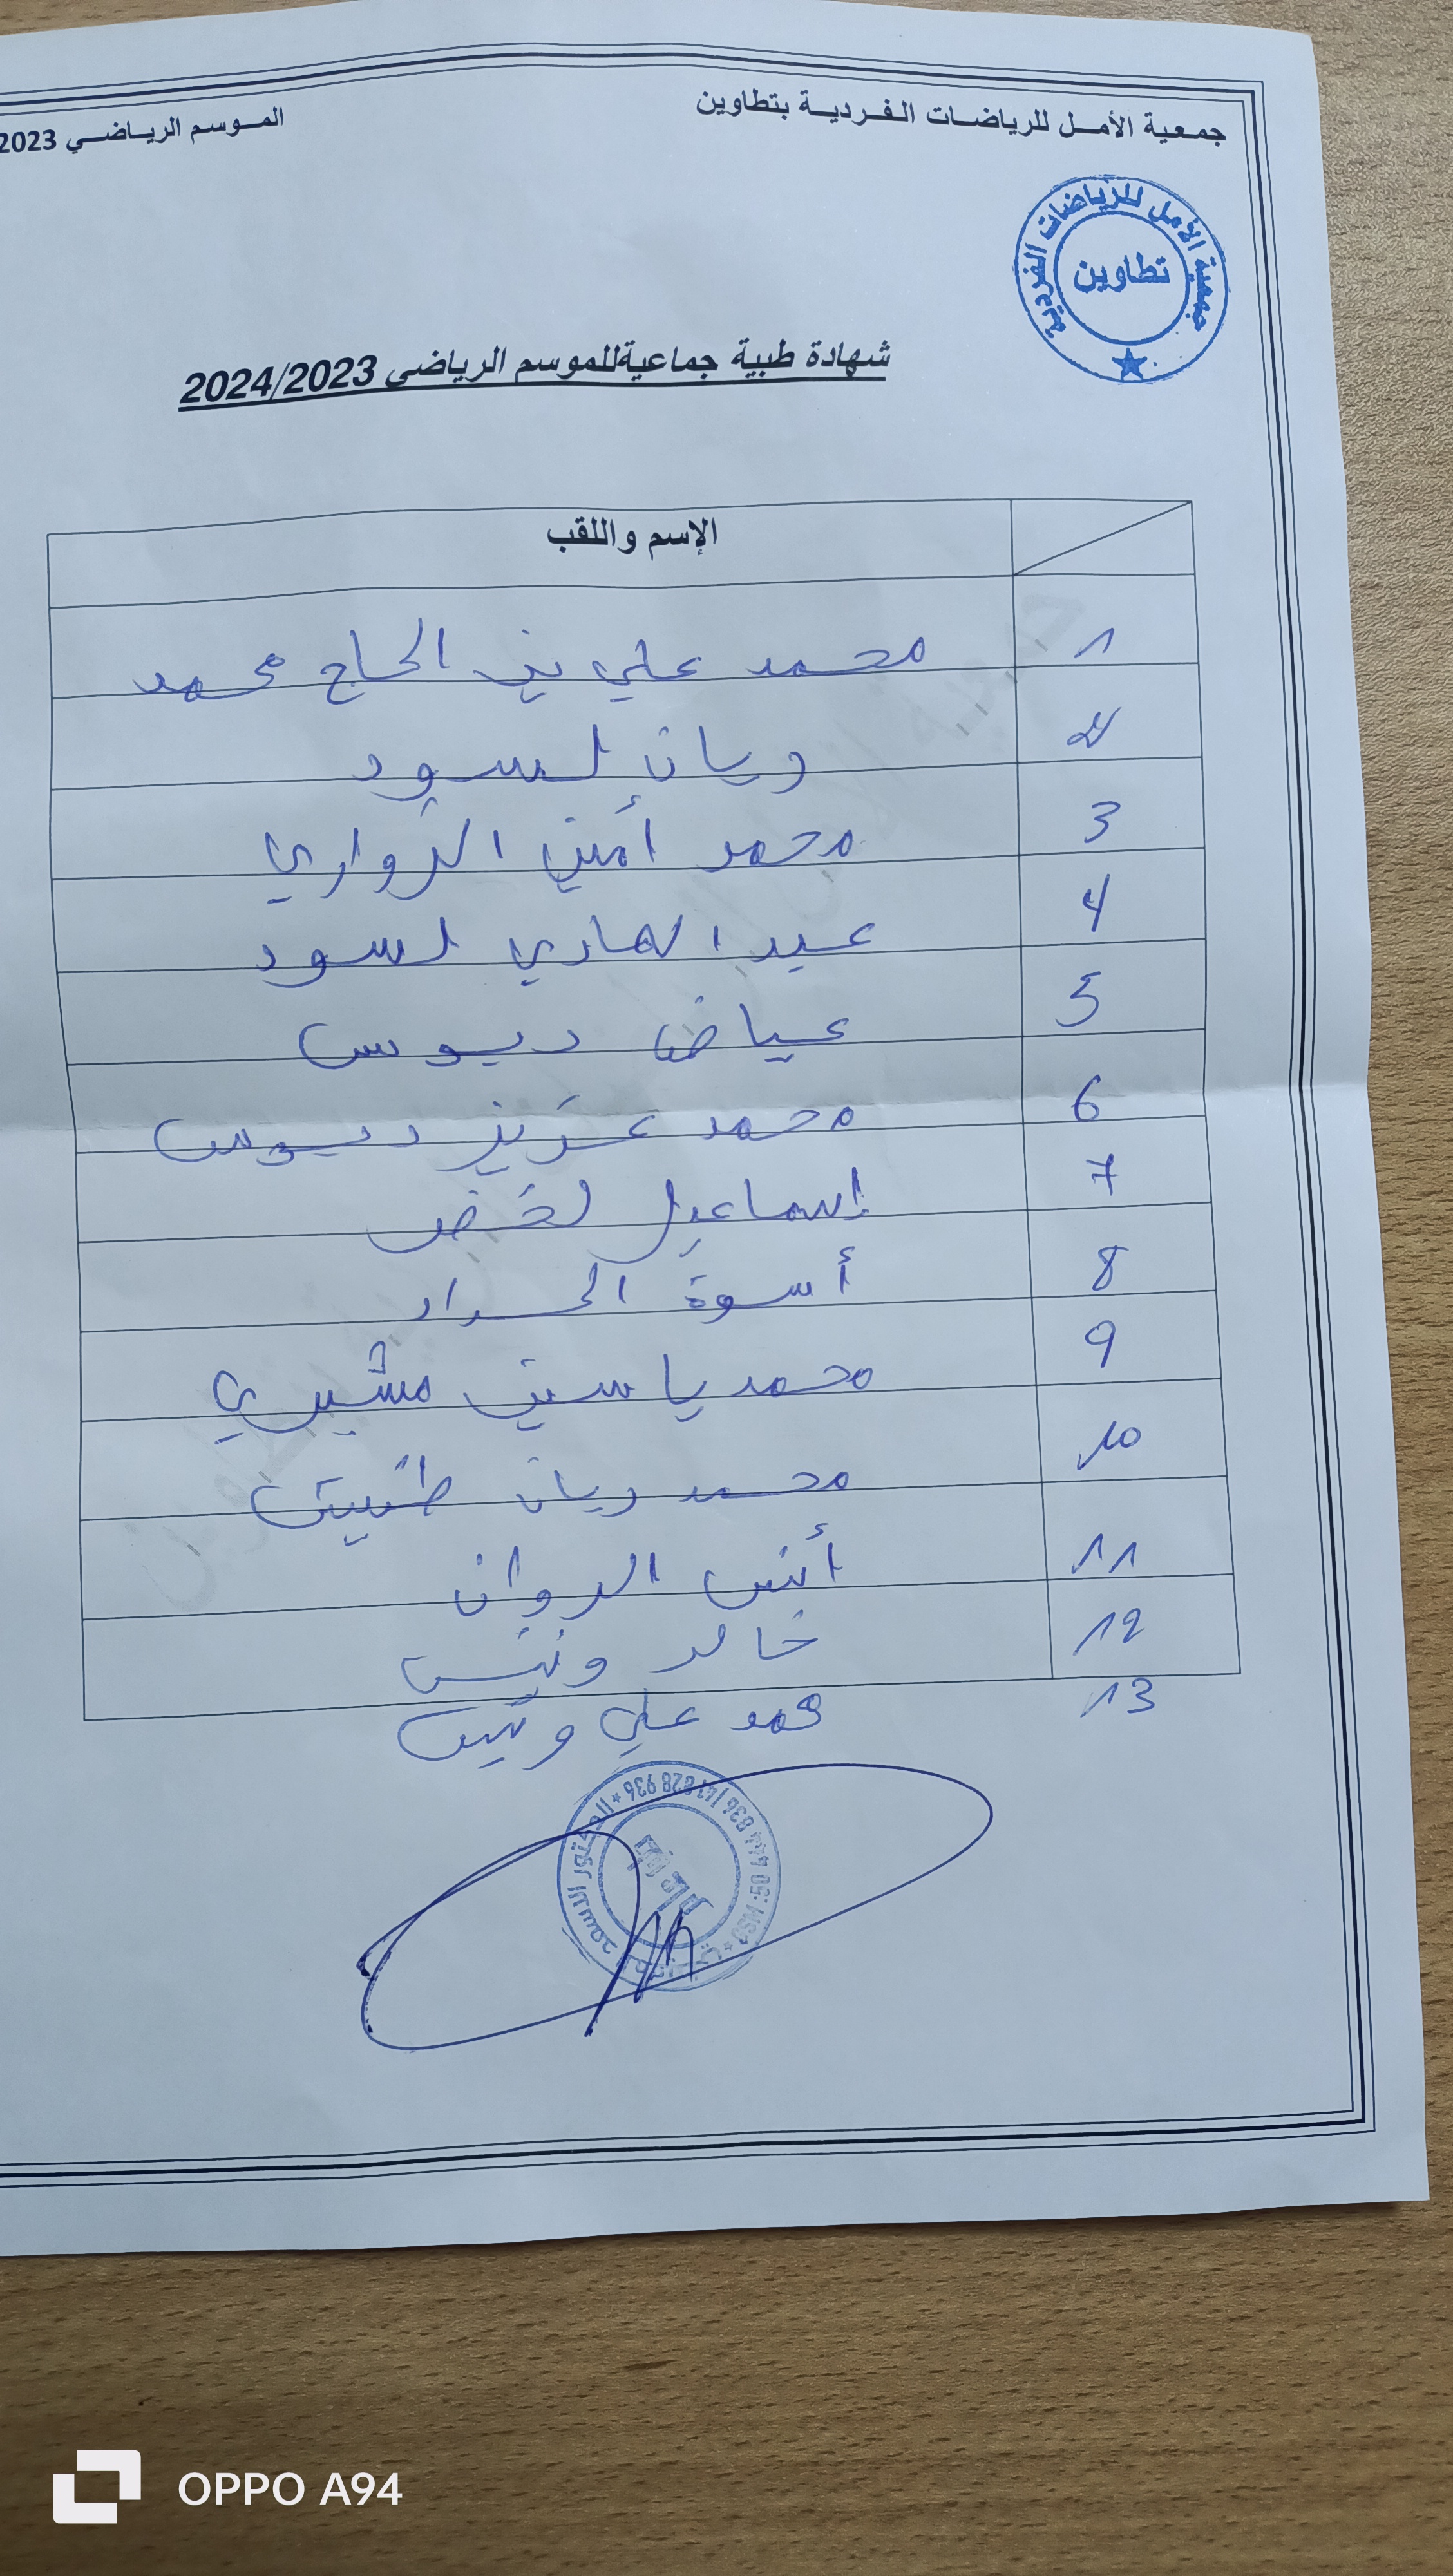 جمعية الأمل للرياضات الفردية بتطاوين
الموسم الرياضي 2023
جمعية الأمل للرياضات الفردية
تطاوين
شهادة طبية جماعيةللموسم الرياضي 2024/2023
الإسم واللقب
1 محمد علي بن الحاج محمد
2 ريان لسود
3 محمد أمين الزواري
4 عبد الهادي لسود
5 عياض دبوس
6 محمد عزيز دبوس
7 إسماعيل
8 أسوة الحداد
9 محمد ياسين مشيري
10 محمد ريان
11 أنس
12 خالد ونيس
13 محمد علي ونيس
GSM :50 444 036 / 41 828 936
OPPO A94